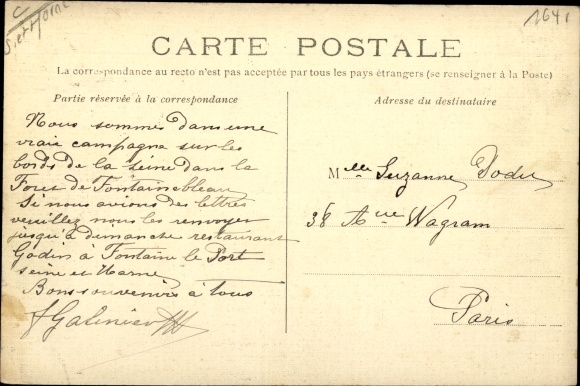 S. et Marne
1641
CARTE POSTALE
La correspondance au recto n'est pas acceptée par tous les pays étrangers (se renseigner à la Poste)
Partie réservée à la correspondance
Nous sommes dans une
vraie campagne sur les
bords de la seine dans la
Foret de Fontainebleau
Si nous avions des lettres
veuillez nous les renvoyer
jusqu'à dimanche restaurant
Godin à Fontaine le Port
seine et Marne
Bons souvenirs à tous
Adresse du destinataire
Melle Suzanne Dodu
38 Aue Wagram
Paris